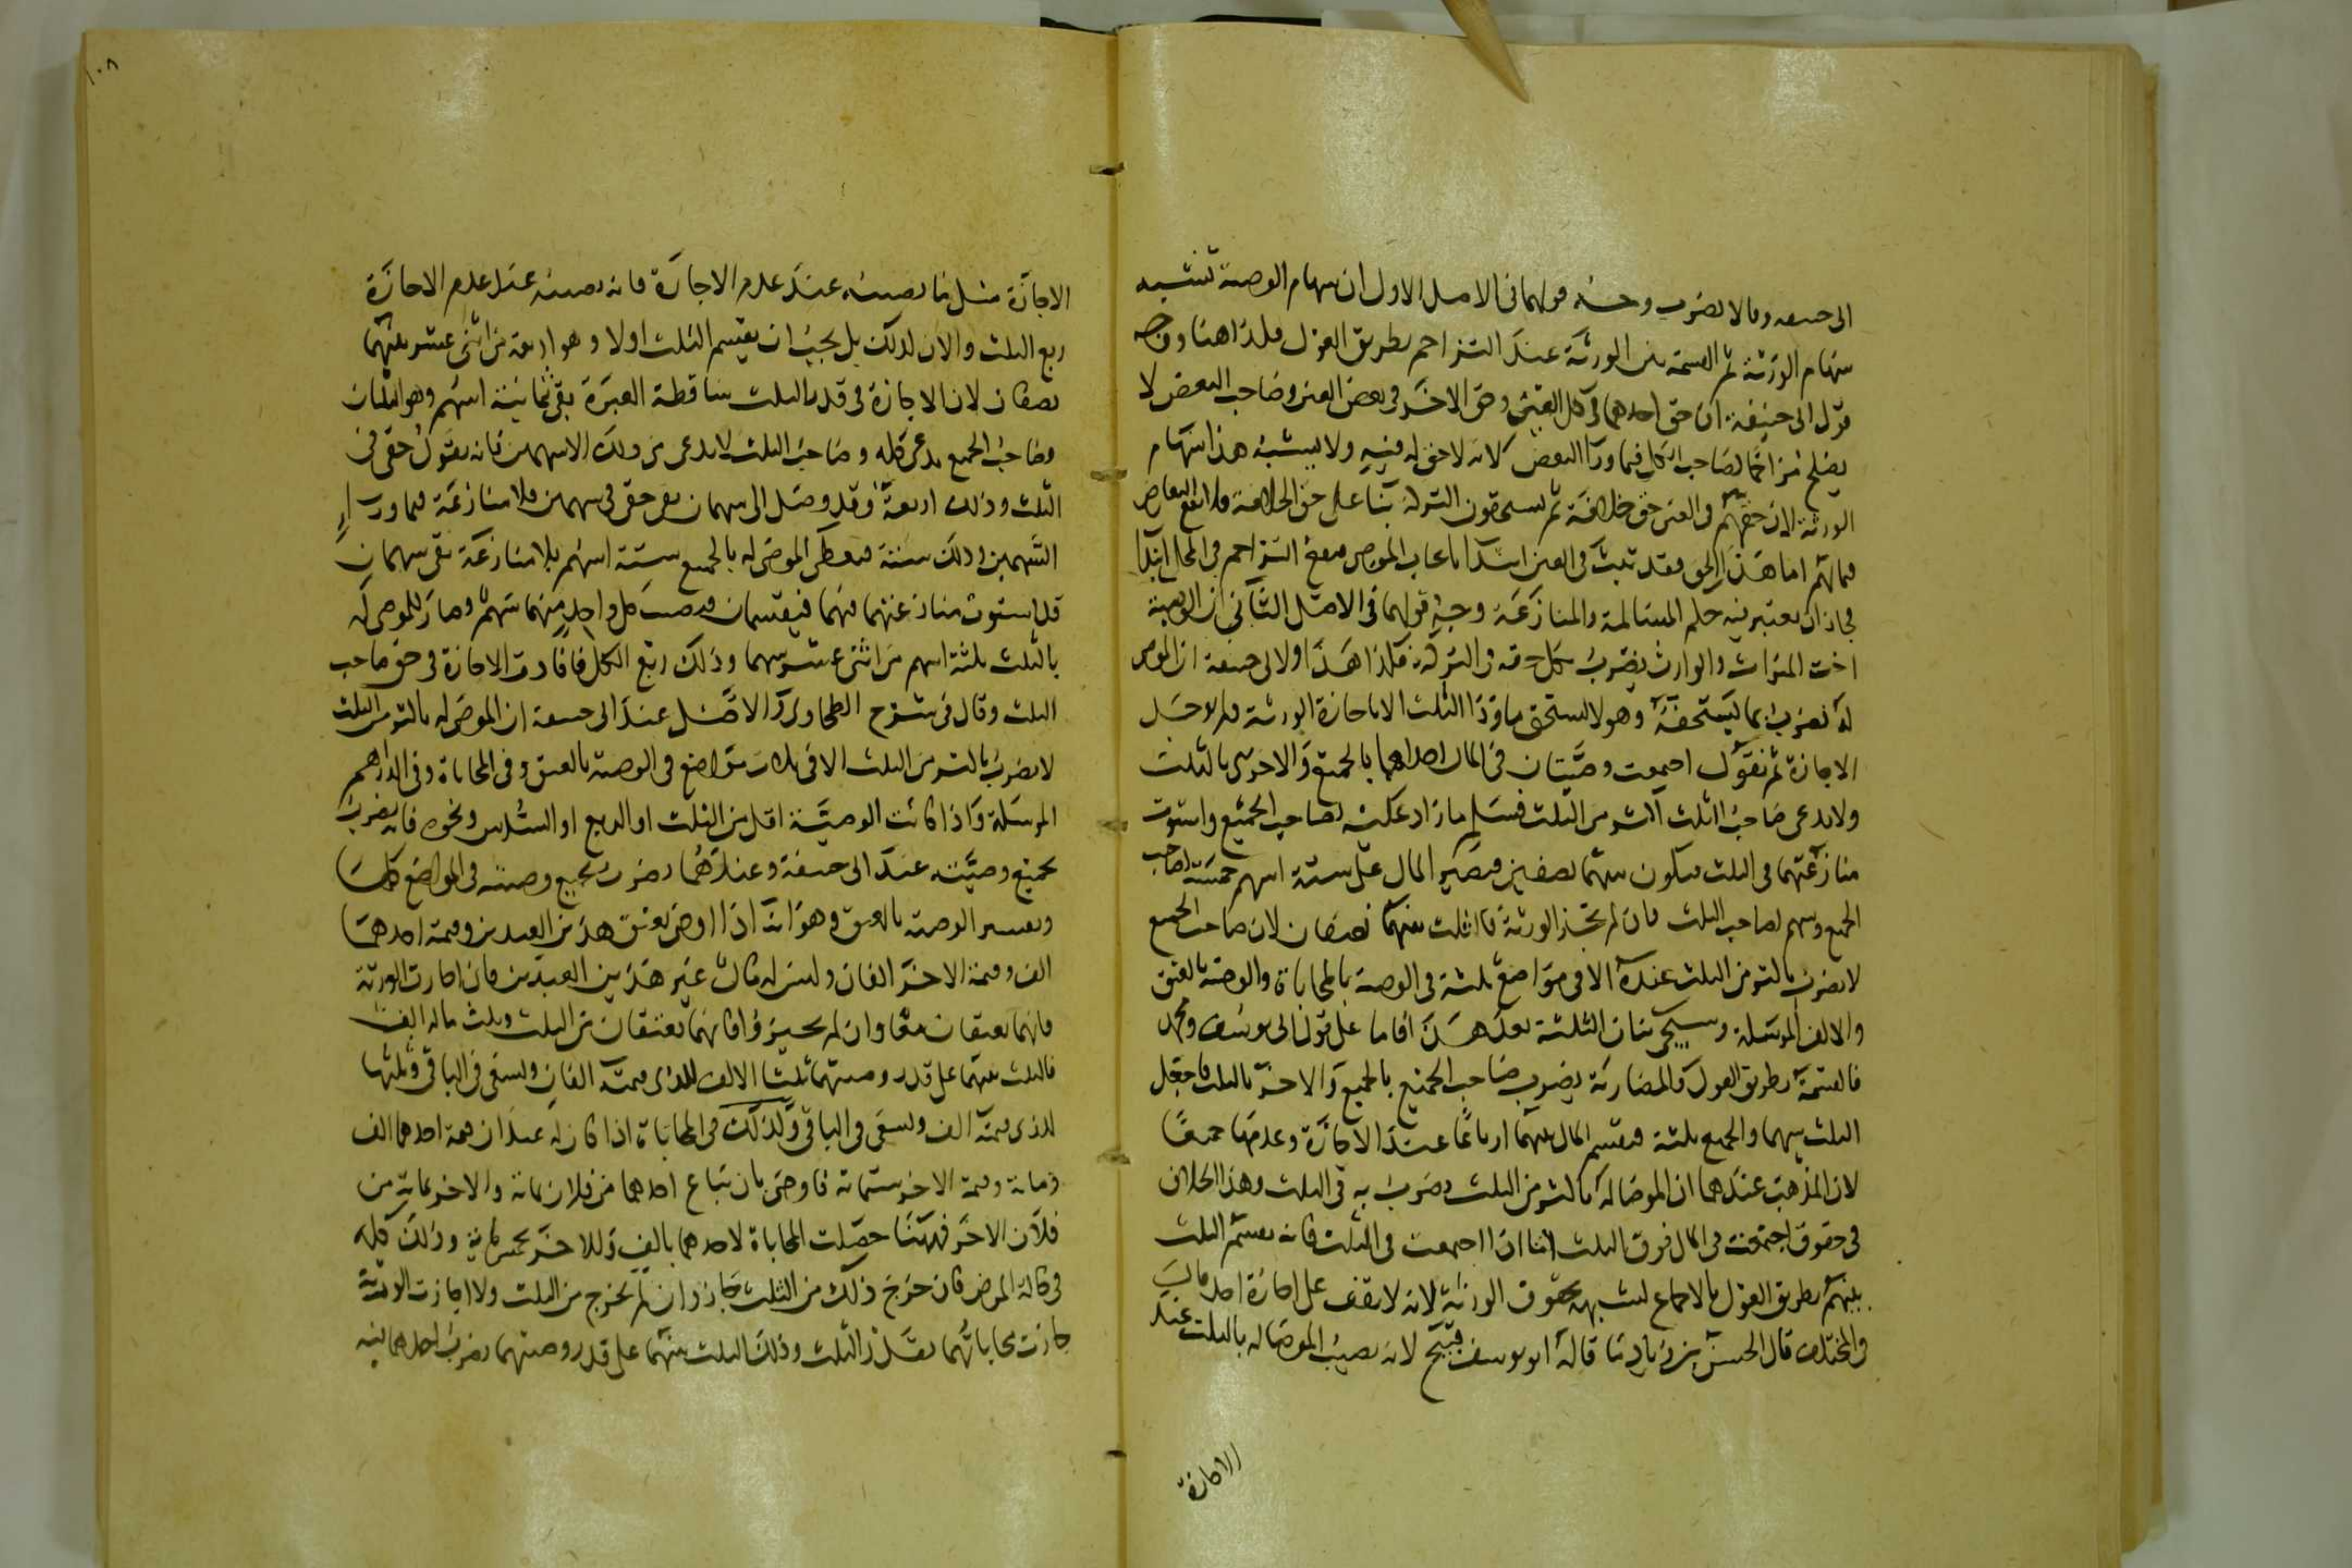 الى حنيفة وما لا يضرب وجه قولهما فى الاصل الاول ان سهام الوصية تشبه
سهام الورثة ثم القسمة بين الورثة عند التزاحم بطريق العول فكذا هنا ووجه
قول ابى حنيفة ان حق احدهما فى كل العين وحق الاخر فى بعض العين وصاحب البعض لا
يصلح مزاحما لصاحب الكل فيما ورا البعض لانه لا حق له فيه ولا يشبه هذا سهام
الورثة لان حقهم فى العين حق خلافة ثم يستحقون التركة بنا على حق الخلافة
اما هذا الحق فقد ثبت فى العين ابتدا التزاحم فى المحل ابتدا
فجاز ان يعتبر فيه حكم المسالمة والمنازعة وجه قولهما فى الاصل الثانى ان الوصية
اخت الميراث والوارث يضرب بكل حقه فى التركة فكذا هذا ولابى حنيفة ان الموصى
له يضرب بما يستحقه وهو لا يستحق ما ورا الثلث الا باجازة الورثة ولم يوجد
الاجازة ثم نقول اجتمعت وصيتان فى المال احداهما بالجميع والاخرى بالثلث
ولا يدعى صاحب الثلث اكثر من الثلث فسلم ما زاد عليه لصاحب الجميع واستوت
منازعتهما فى الثلث فيكون بينهما نصفين فيصير المال على ستة اسهم خمسة لصاحب
الجميع وسهم لصاحب الثلث فان لم تجز الورثة فالثلث بينهما نصفان لان صاحب الجميع
لا يضرب باكثر من الثلث عنده الا فى مواضع ثلثة فى الوصية بالمحاباة والوصية بالعتق
والالف المرسلة وسيجى بيان الثلثة بعد هذا فاما على قول ابى يوسف ومحمد
فالقسمة بطريق العول والمضاربة يضرب صاحب الجميع بالجميع والاخر بالثلث فاجعل
الثلث سهما والجميع ثلثة فيقسم المال بينهما ارباعا عند الاجازة وعدمها جميعا
لان المذهب عندهما ان الموصا له باكثر من الثلث يضرب به فى الثلث وهذا الخلاف
فى حقوق اجتمعت فى المال فوق الثلث اما اذا اجتمعت فى الثلث فانه يقسم الثلث
بينهم بطريق العول بالاجماع لشبهه بحقوق الورثة لانه لا يقف على اجازة احد
وفى المختلف قال الحسن بن زياد ما قاله ابو يوسف قبيح لانه يصيب الموصا له بالثلث عند
الاجازة
١٠٨
الاجازة مثل ما يصيبه عند عدم الاجازة فانه يصيبه عند عدم الاجازة
ربع الثلث والان كذلك بل يجب ان يقسم الثلث اولا وهو اربعة من اثنى عشر بينهما
نصفان لان الاجازة فى قدر الثلث ساقطة العبرة بقى ثمانية اسهم وهو الثلثان
وصاحب الجميع يدعى كله وصاحب الثلث لا يدعى من ذلك الا سهمين فانه يقول حقى فى
الثلث وذلك اربعة وقد وصل الى سهمان بقى حقى فى سهمين فلا منازعة فيما ورا
السهمين وذلك ستة فيعطى الموصى له بالجميع ستة اسهم بلا منازعة بقى سهمان
قد استوت منازعتهما فيهما فيقسمان فيصيب كل واحد منهما سهم وصار للموصى له
بالثلث ثلثة اسهم من اثنى عشر سهما وذلك ربع الكل فافادت الاجازة فى حق صاحب
الثلث وقال فى شرح الطحاوى والاصل عند ابى حنيفة ان الموصى له باكثر من الثلث
لا يضرب باكثر من الثلث الا فى ثلاث مواضع فى الوصية بالعتق وفى المحاباة وفى الدراهم
المرسلة واذا كانت الوصية اقل من الثلث او الربع او السدس ونحوه فانه يضرب
بجميع وصيته عند ابى حنيفة وعندهما يضرب بجميع وصيته فى المواضع كلها
وتفسير الوصية بالعتق وهو انه اذا اوصى بعتق هذين العبدين وقيمة احدهما
الف وقيمة الاخر الفان وليس له مال غير هذين العبدين فان اجازت الورثة
فانهما يعتقان معا وان لم يجيزوا فانهما يعتقان من الثلث وثلث ماله الف
فالثلث بينهما على قدر وصيتهما ثلثا الالف للذى قيمته الفان ويسعى فى الباقى وثلثها
للذى قيمته الف ويسعى فى الباقى وكذلك فى المحاباة اذا كان له عبدان قيمة احدهما الف
ومائة وقيمة الاخر ستمائة فاوصى بان يباع احدهما من فلان بمائة والاخر بمائة من
فلان الاخر فههنا حصلت المحاباة لاحدهما بالف وللاخر بخمس مائة وذلك كله
فى حالة المرض فان خرج ذلك من الثلث جاز وان لم يخرج من الثلث ولا اجازت الورثة
جازت محاباتهما بقدر الثلث وذلك الثلث بينهما على قدر وصيتهما يضرب احدهما فيه